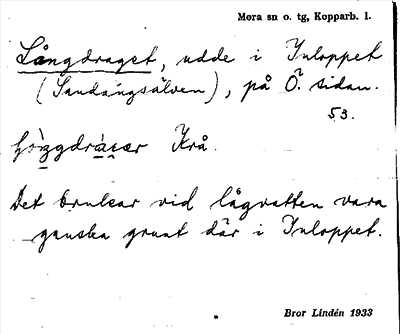 Mora sn o. tg, Kopparb. l.
Långdraget, udde i Inloppet
(Sandängsälven), på Ö. sidan.
53.
Krå.
Det brukar vid lågvatten vara
ganska grunt där i Inloppet.
Bror Lindén 1933